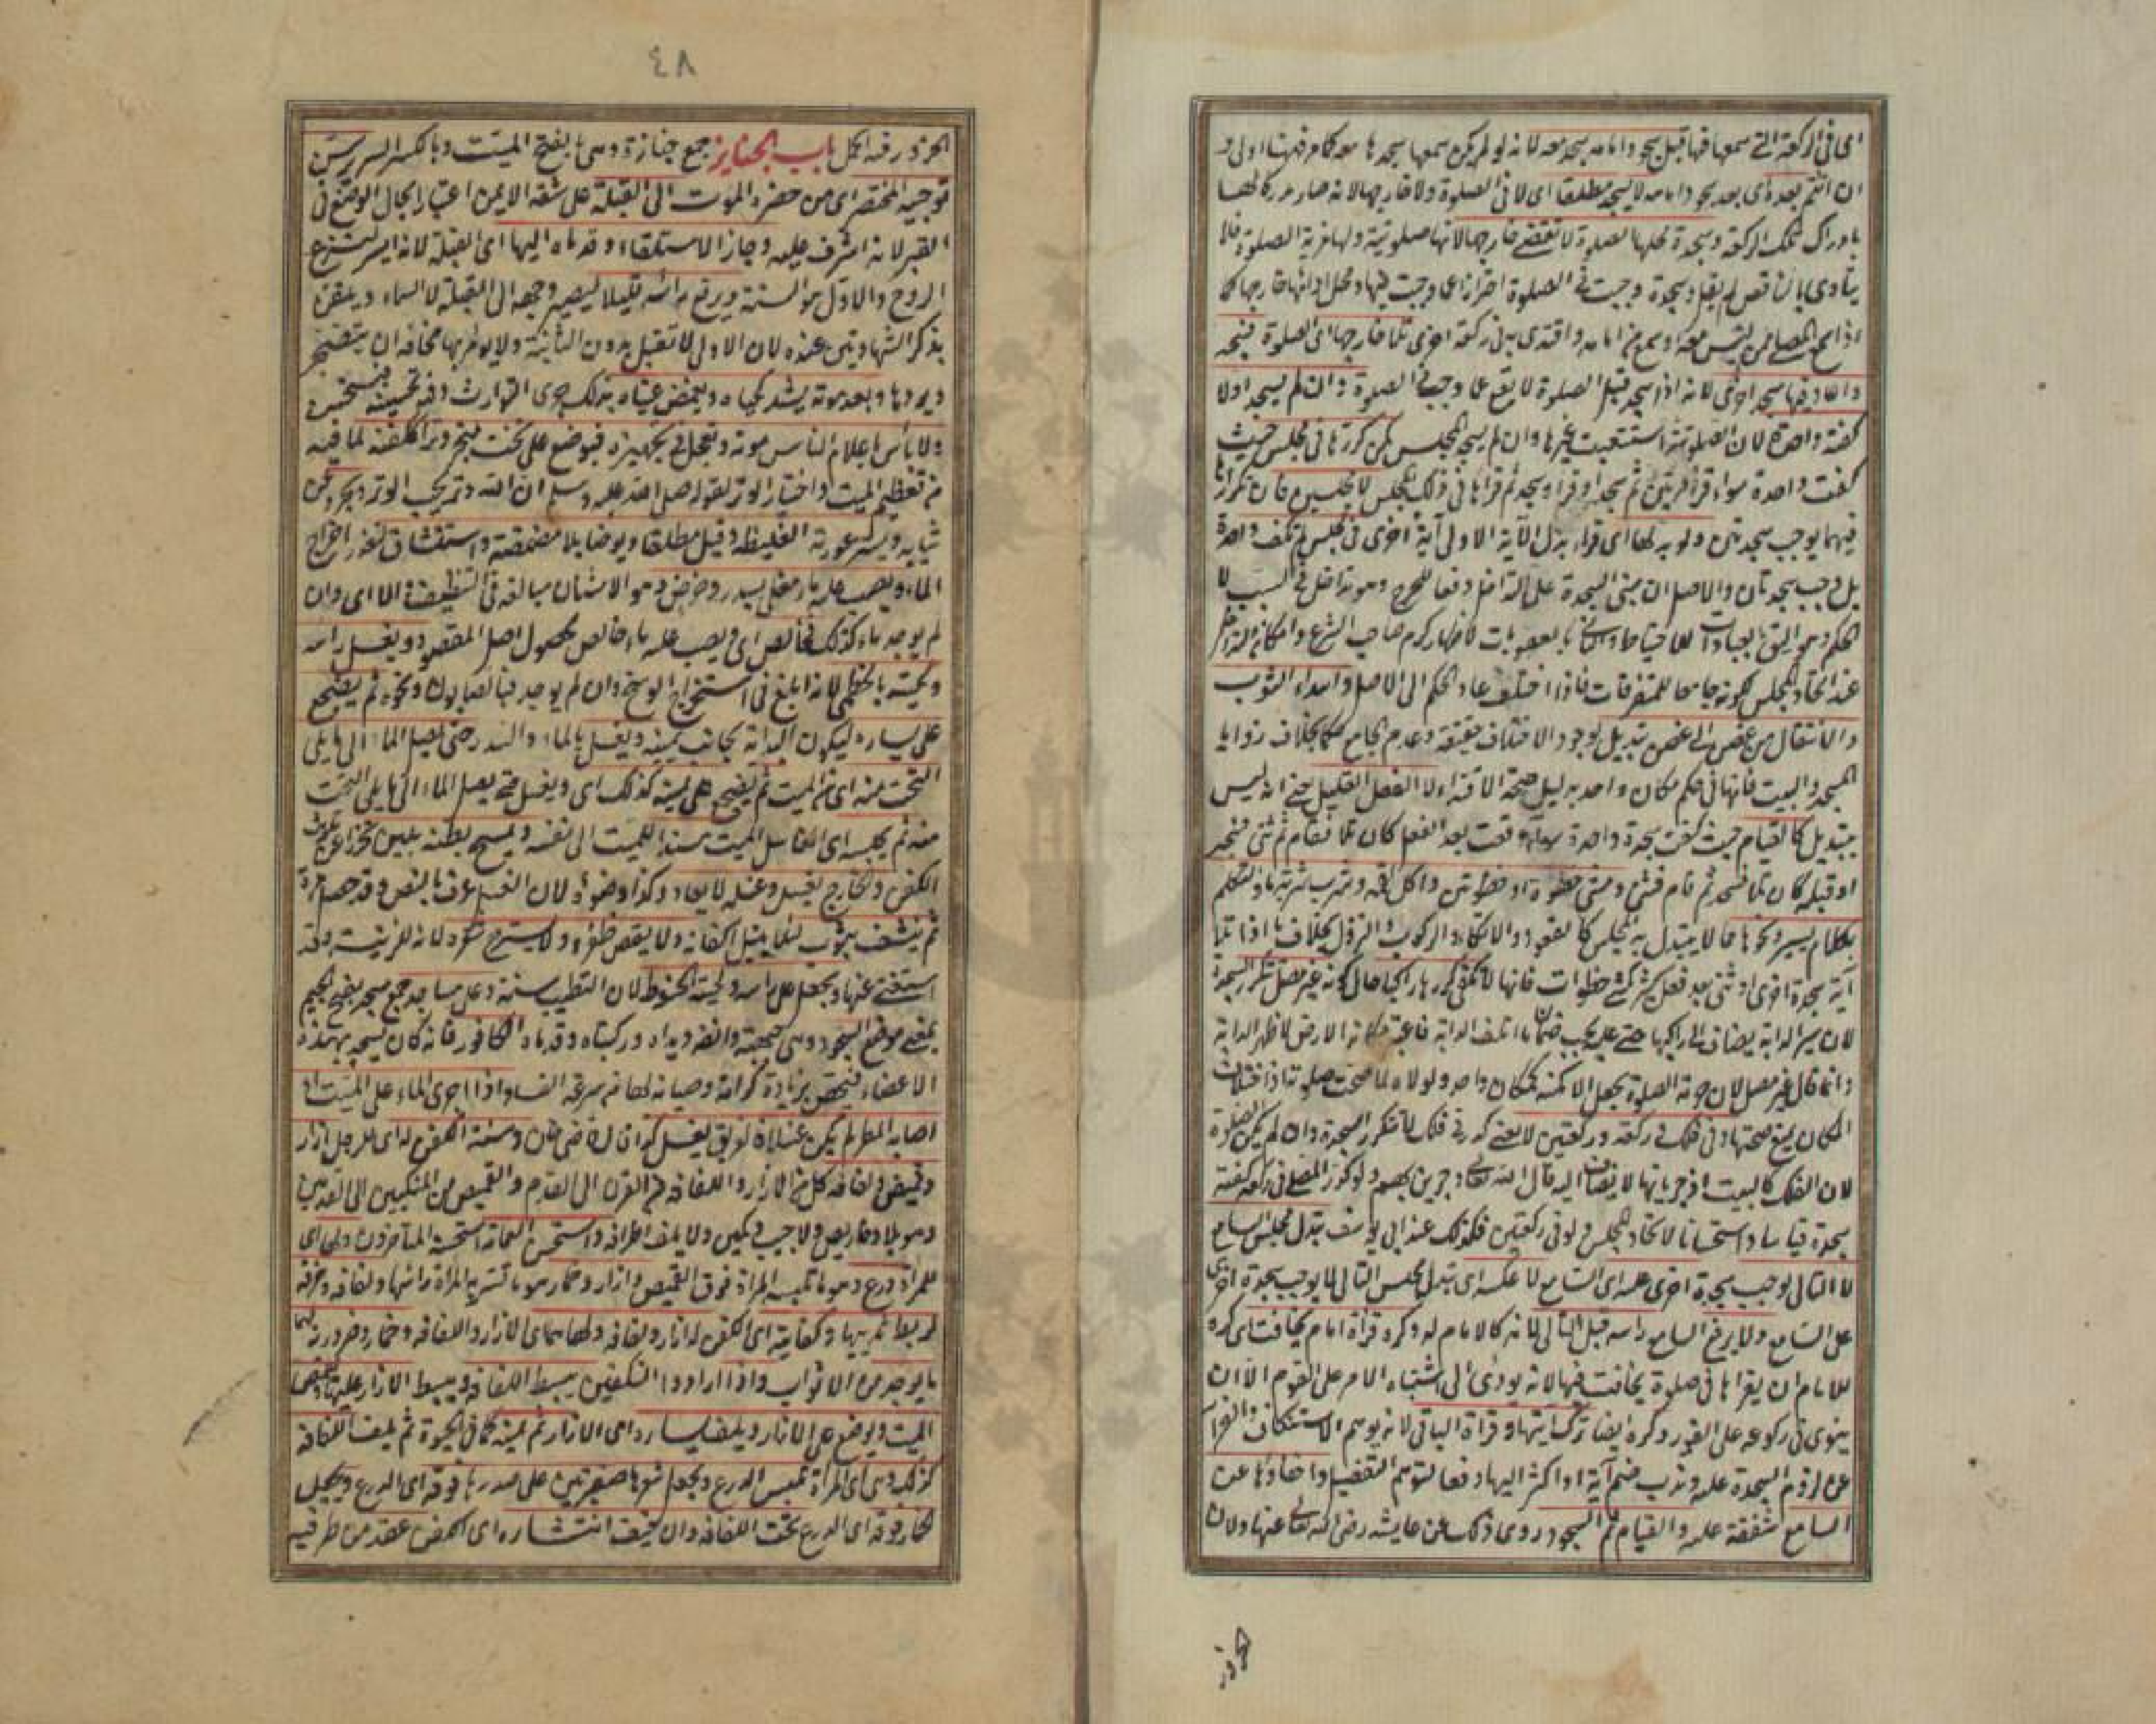 اى فى الركعة التى سمعها فيها قبل سجود امامه سجد معه لانه لو لم يكن سمعها سجدها معه كما مر فههنا اولى و
ان ائتم بعده اى بعد سجود امامه لا يسجد مطلقا اى لا فى الصلوة ولا خارجها لانه صار مدركا لها
بادراك تلك الركعة وسجدة محلها الصلوة لا تقضى خارجها لانها صلوتية ولها مزية الصلوة فلا
يتأدى بالناقص لم يقل وسجدة وجبت فى الصلوة احترازا عما وجبت فيها ومحل ادائها خارجها كما
اذا سمع المصلى ممن ليس معه او سمع من امامه واقتدى به فى ركعة اخرى تلا خارجها اى الصلوة فسجد
واعاد فيها سجد اخرى لانه اذا سجد قبل الصلوة لا يقع عما وجب فى الصلوة وان لم يسجد اولا
كفته واحدة لان الصلوتية استتبعت غيرها وان لم يتحد المجلس كمن كررها فى مجلس حيث
كفت واحدة سواء قرأ مرتين ثم سجد او قرأ وسجد ثم قرأها فى ذلك المجلس لا مجلسين فان تكرارها
فيهما يوجب سجدتين ولو بدلها اى قراء بدل الآية الاولى آية اخرى فى مجلس لم تكف واحدة
بل وجب سجدتان والاصل ان مبنى السجدة على التداخل دفعا للحرج وهو تداخل فى السبب لا
الحكم وهو اليق بالعبادات للاحتياط والثانى بالعقوبات لاظهار كرم صاحب الشرع وامكانه التداخل
عند اتحاد المجلس لكونه جامعا للمتفرقات فاذا اختلف عاد الحكم الى الاصل واسداء الثوب
والانتقال من غصن الى غصن تبديل لوجود الاختلاف حقيقة وعدم الجامع حكما بخلاف زوايا
المسجد والبيت فانها فى حكم مكان واحد بدليل صحة الاقتداء لا الفعل القليل حتى انه ليس
بتبديل كالقيام حيث كفت سجدة واحدة سواء وقعت بعد الفعل كان تلا فقام ثم ثنى فسجد
او قبله كان تلا فسجد ثم قام فثنى ومشى خطوة او خطوتين واكل لقمة وشرب شربة ماء والتكلم
بكلام يسير ونحوها مما لا يتبدل به المجلس كالقعود والاتكاء والركوب والنزول بخلاف ما اذا تلا
آية سجدة اخرى او ثنى بعد فعل كثير كثلث خطوات فانها لا تكفى كررها راكبا حال كونه غير مصل تتكرر السجدة
لان سير الدابة يضاف الى راكبها حتى يجب عليه ضمان ما اتلف الدابة فاعتبر مكانه الارض لا ظهر الدابة
وانما قال غير مصل لان حرمة الصلوة يجعل الامكنة كمكان واحد ولولاه لما صحت صلوته اذ اختلاف
المكان يمنع صحتها وفى فلك فى ركعة وركعتين لا يعنى كرر فى فلك لا تتكرر السجدة وان لم يكن فى الصلوة
لان الفلك كالبيت اذ جريانها لا يضاف اليه قال الله تعالى وجرين بهم ولو كرر المصلى فى ركعة كفته
سجدة قياسا واستحسانا لاتحاد المجلس ولو فى ركعتين فكذلك عند ابى يوسف تبدل مجلس السامع
لا التالى يوجب سجدة اخرى عليه اى السامع لا عكسه اى تبدل مجلس التالى لا يوجب سجدة اخرى
على السامع ولا يرفع السامع راسه قبل التالى لانه كالامام له وكره قرأة امام يخافت اى كره
للامام ان يقرأها فى صلوة يخافت فيها لانه يؤدى الى اشتباه الامر على القوم الا ان
ينوى فى ركوعه على الفور وكره ايضا ترك آيتها وقرأة الباقى لانه يوهم الاستنكاف والفرار
عن لزوم السجدة عليه وندب ضم آية او اكثر اليها دفعا لتوهم التفضيل واخفاؤها عن
السامع شفقة عليه والقيام ثم السجود روى ذلك عن عايشة رضى الله تعالى عنها ولان
الخرور
٤٨
الخرور فيه اكمل باب الجنايز جمع جنازة وهى بالفتح الميت وبالكسر السرير سن
توجيه المحتضر اى من حضره الموت الى القبلة على شقه الايمن اعتبارا بحال الوضع فى
القبر لانه اشرف عليه وجاز الاستلقاء وقدماه اليها اى القبلة لانه ايسر لنزع
الروح والاول هو السنة ويرفع رأسه قليلا ليصير وجهه الى القبلة لا السماء ويلقن
بذكر الشهادتين عنده لان الاولى لا تقبل بدون الثانية ولا يؤمر بها مخافة ان يتضجر
ويردها وبعد موته يشد لحياه ويغمض عيناه بذلك جرى التوارث وفيه تحسينه فيستحسن
ولا بأس باعلام الناس موته ويعجل فى تجهيزه فيوضع على تخت مجمر وترا ككفنه لما فيه
من تعظيم الميت واختيار الوتر لقوله صلى الله عليه وسلم ان الله وتر يحب الوتر ويجرد عن
ثيابه ويستر عورته الغليظة وقيل مطلقا ويوضأ بلا مضمضة واستنشاق لتعذر اخراج
الماء ويصب عليه ماء مغلى بسدر وحرض وهو الاشنان مبالغة فى التنظيف والا اى وان
لم يوجد ماء كذلك فخالص اى يصب عليه ماء خالص لحصول اصل المقصود ويغسل رأسه
ولحيته بالخطمى لانه ابلغ فى استخراج الوسخ وان لم يوجد فبالصابون ونحوه ثم يضجع
على يساره ليكون البداية بجانب يمينه ويغسل بالماء والسدر حتى يصل الماء الى ما يلى
التخت منه اى من الميت ثم يضجع على يمينه كذلك اى ويغسل حتى يصل الماء الى ما يلى التخت
منه ثم يجلسه اى الغاسل الميت مسندا للميت الى نفسه ويمسح بطنه بلين تحرزا عن تلويث
الكفن والخارج يغسل وغسله لا يعاد وكذا وضوؤه لان الغسل عرف بالنص وقد حصل مرة
ثم ينشف بثوب لئلا يبتل اكفانه ولا يقص ظفره ولا يسرح شعره لانه للزينة وقد
استغنى عنها ويجعل على راسه ولحيته الحنوط لان التطيب سنة وعلى مساجده جمع مسجد بفتح الجيم
بمعنى موضع السجود وهى جبهته وانفه ويداه وركبتاه وقدماه الكافور فانه كان يسجد بهذه
الاعضاء فيختص بزيادة كرامة وصيانة لها عن سرعة الفساد واذا جرى الماء على الميت او
اصابه المطر لم يكن غسلا فالغريق يغسل كذا قال قاضى خان وسنة الكفن له اى للرجل ازار
وقميص ولفافة كل من الازار واللفافة من القرن الى القدم والقميص من المنكبين الى القدمين
وهو بلا دخاريص ولا جيب وكمين ولا يلف اطرافه واستحسن العمامة استحسنه المتأخرون ولها اى
للمرأة درع وهو ما تلبسه المرأة فوق القميص وازار وخمار هو ما تستر به المرأة رأسها ولفافة وخرقة
لربط ثدييها وكفايته اى الكفن له ازار ولفافة ولها هما اى الازار واللفافة وخمار وضرورة لهما
ما يوجد من الاثواب واذا ارادوا التكفين يبسط اللفافة ويبسط الازار عليها ويقمص
الميت ويوضع على الازار ويلف يساره اى الازار ثم يمينه كما فى الحيوة ثم يلف اللفافة
كذلك وهى اى المرأة تلبس الدرع ويجعل شعرها ضفيرتين على صدرها فوقه اى الدرع ويجعل
الخمار فوقه اى الدرع تحت اللفافة وان خيف انتشاره اى الكفن عقد من طرفيه